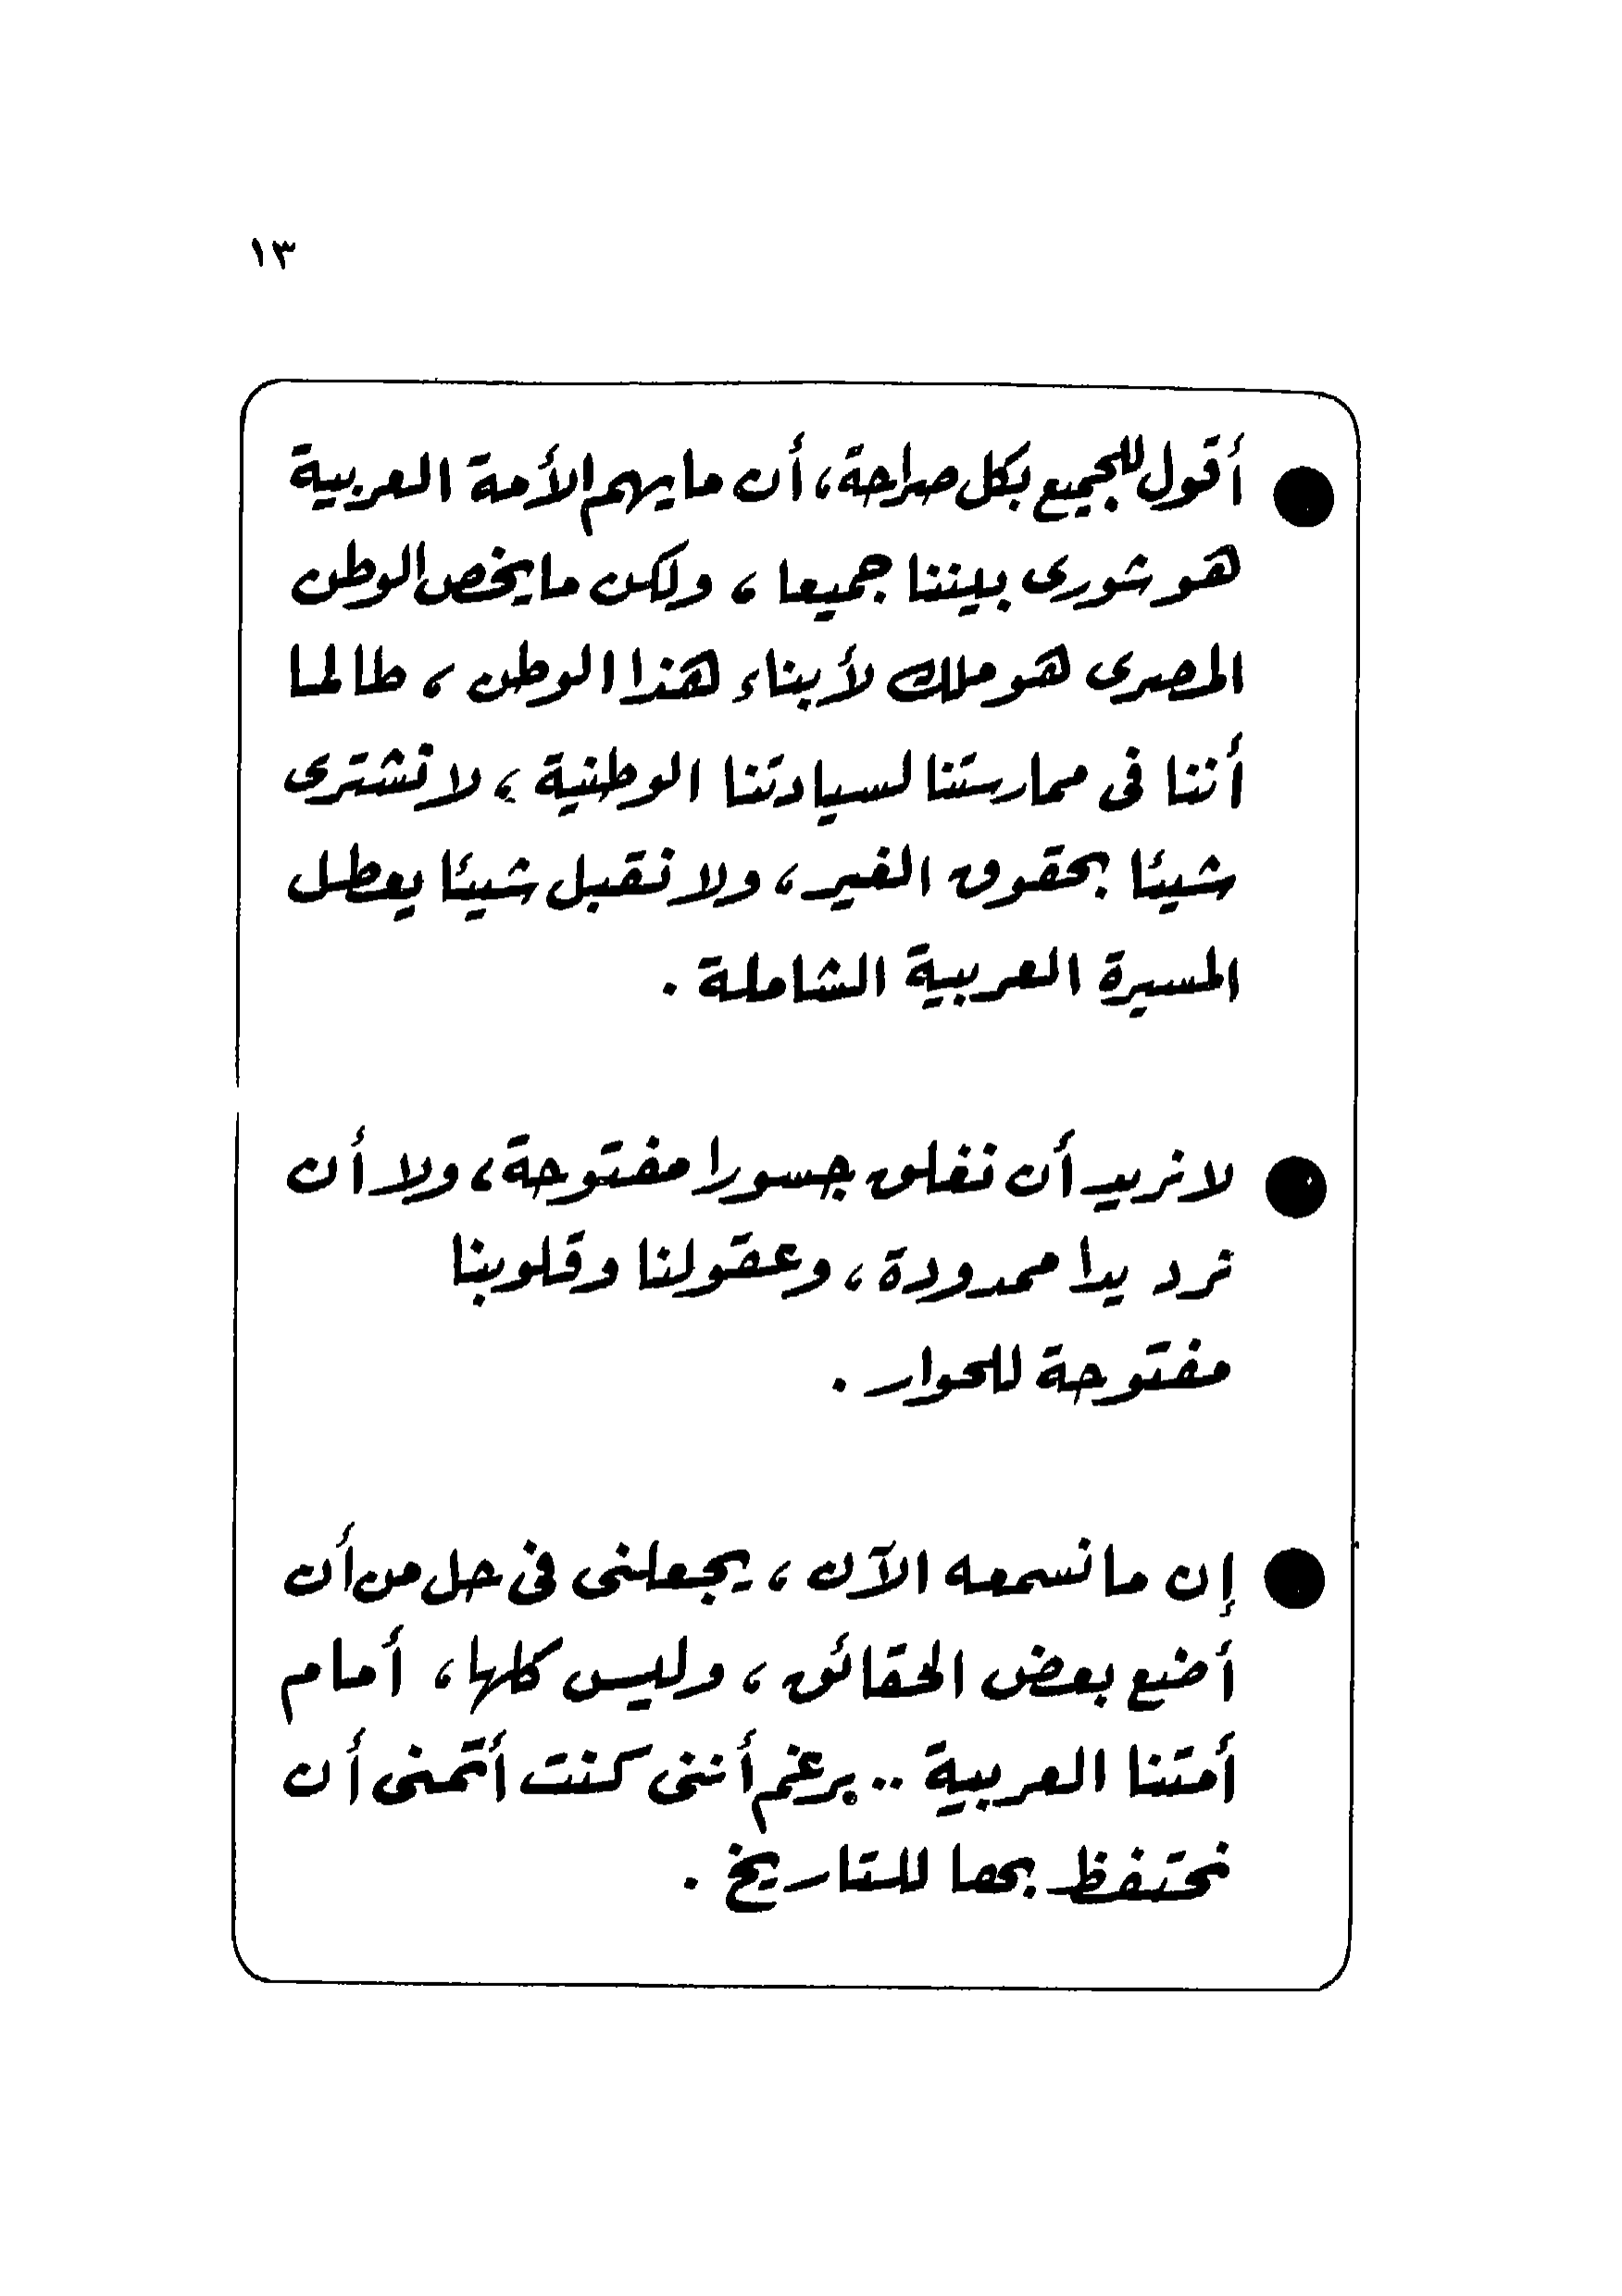 ١٣
● أقول للجميع بكل صراحة، أن ما يهم الأمة العربية
هو شورى بيننا جميعا، ولكن ما يخص الوطن
المصرى هو ملك لأبناء هذا الوطن، طالما
أننا فى ممارستنا لسيادتنا الوطنية، لا نشترى
شيئا بحقوق الغير، ولا نقبل شيئا يعطل
المسيرة العربية الشاملة.
● لا نريد أن نغلق جسورا مفتوحة، ولا أن
نرد يدا ممدودة، وعقولنا وقلوبنا
مفتوحة للحوار.
● إن ما نسمعه الآن، يجعلنى فى حل من أن
أضع بعض الحقائق، وليس كلها، أمام
أمتنا العربية .. برغم أننى كنت أتمنى أن
نحتفظ بها للتاريخ.